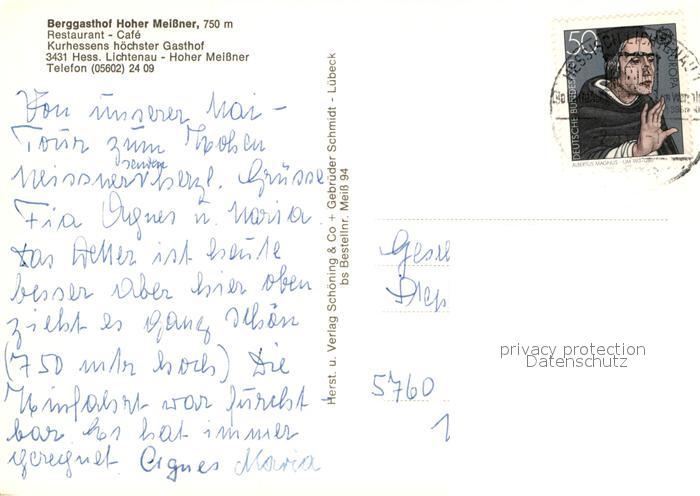 Berggasthof Hoher Meißner, 750 m
Restaurant - Café
Kurhessens höchster Gasthof
3431 Hess. Lichtenau - Hoher Meißner
Telefon (05602) 24 09
Von unserer Mai-
Tour zum Hohen
Meissner senden herzl. Grüsse
Fia Agnes u. Maria.
Das Wetter ist heute
besser aber hier oben
zieht es ganz schön
(750 mtr hoch) Die
Hinfahrt war furcht-
bar. Es hat immer
geregnet. Agnes Maria
Herst. u. Verlag Schöning & Co + Gebrüder Schmidt - Lübeck
bs Bestellnr. Meiß 94
50
DEUTSCHE BUNDESPOST
EUROPA
ALBERTUS MAGNUS · UM 1193-1280
5760
privacy protection
Datenschutz